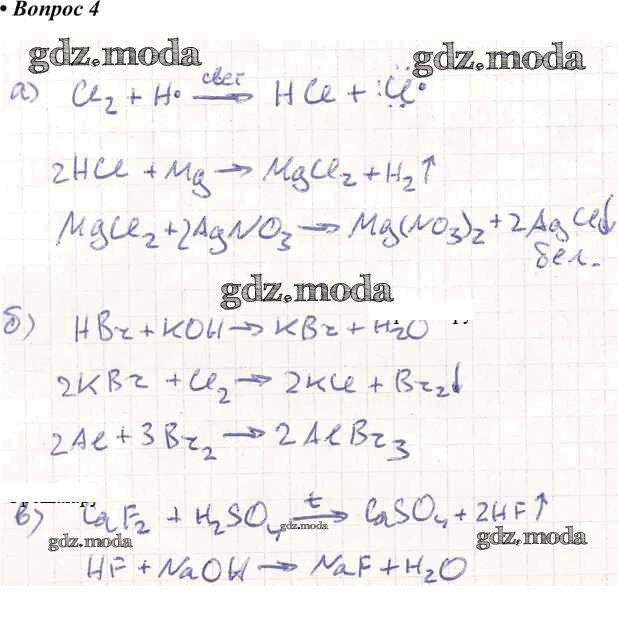 • Вопрос 4
gdz.moda gdz.moda
а) Cl₂ + H· —свет→ HCl + :C̈l·
2HCl + Mg → MgCl₂ + H₂↑
MgCl₂ + 2AgNO₃ → Mg(NO₃)₂ + 2AgCl↓
бел.
gdz.moda
б) HBr + KOH → KBr + H₂O
2KBr + Cl₂ → 2KCl + Br₂↓
2Al + 3Br₂ → 2AlBr₃
в) CaF₂ + H₂SO₄ —t→ CaSO₄ + 2HF↑
gdz.moda gdz.moda gdz.moda
HF + NaOH → NaF + H₂O